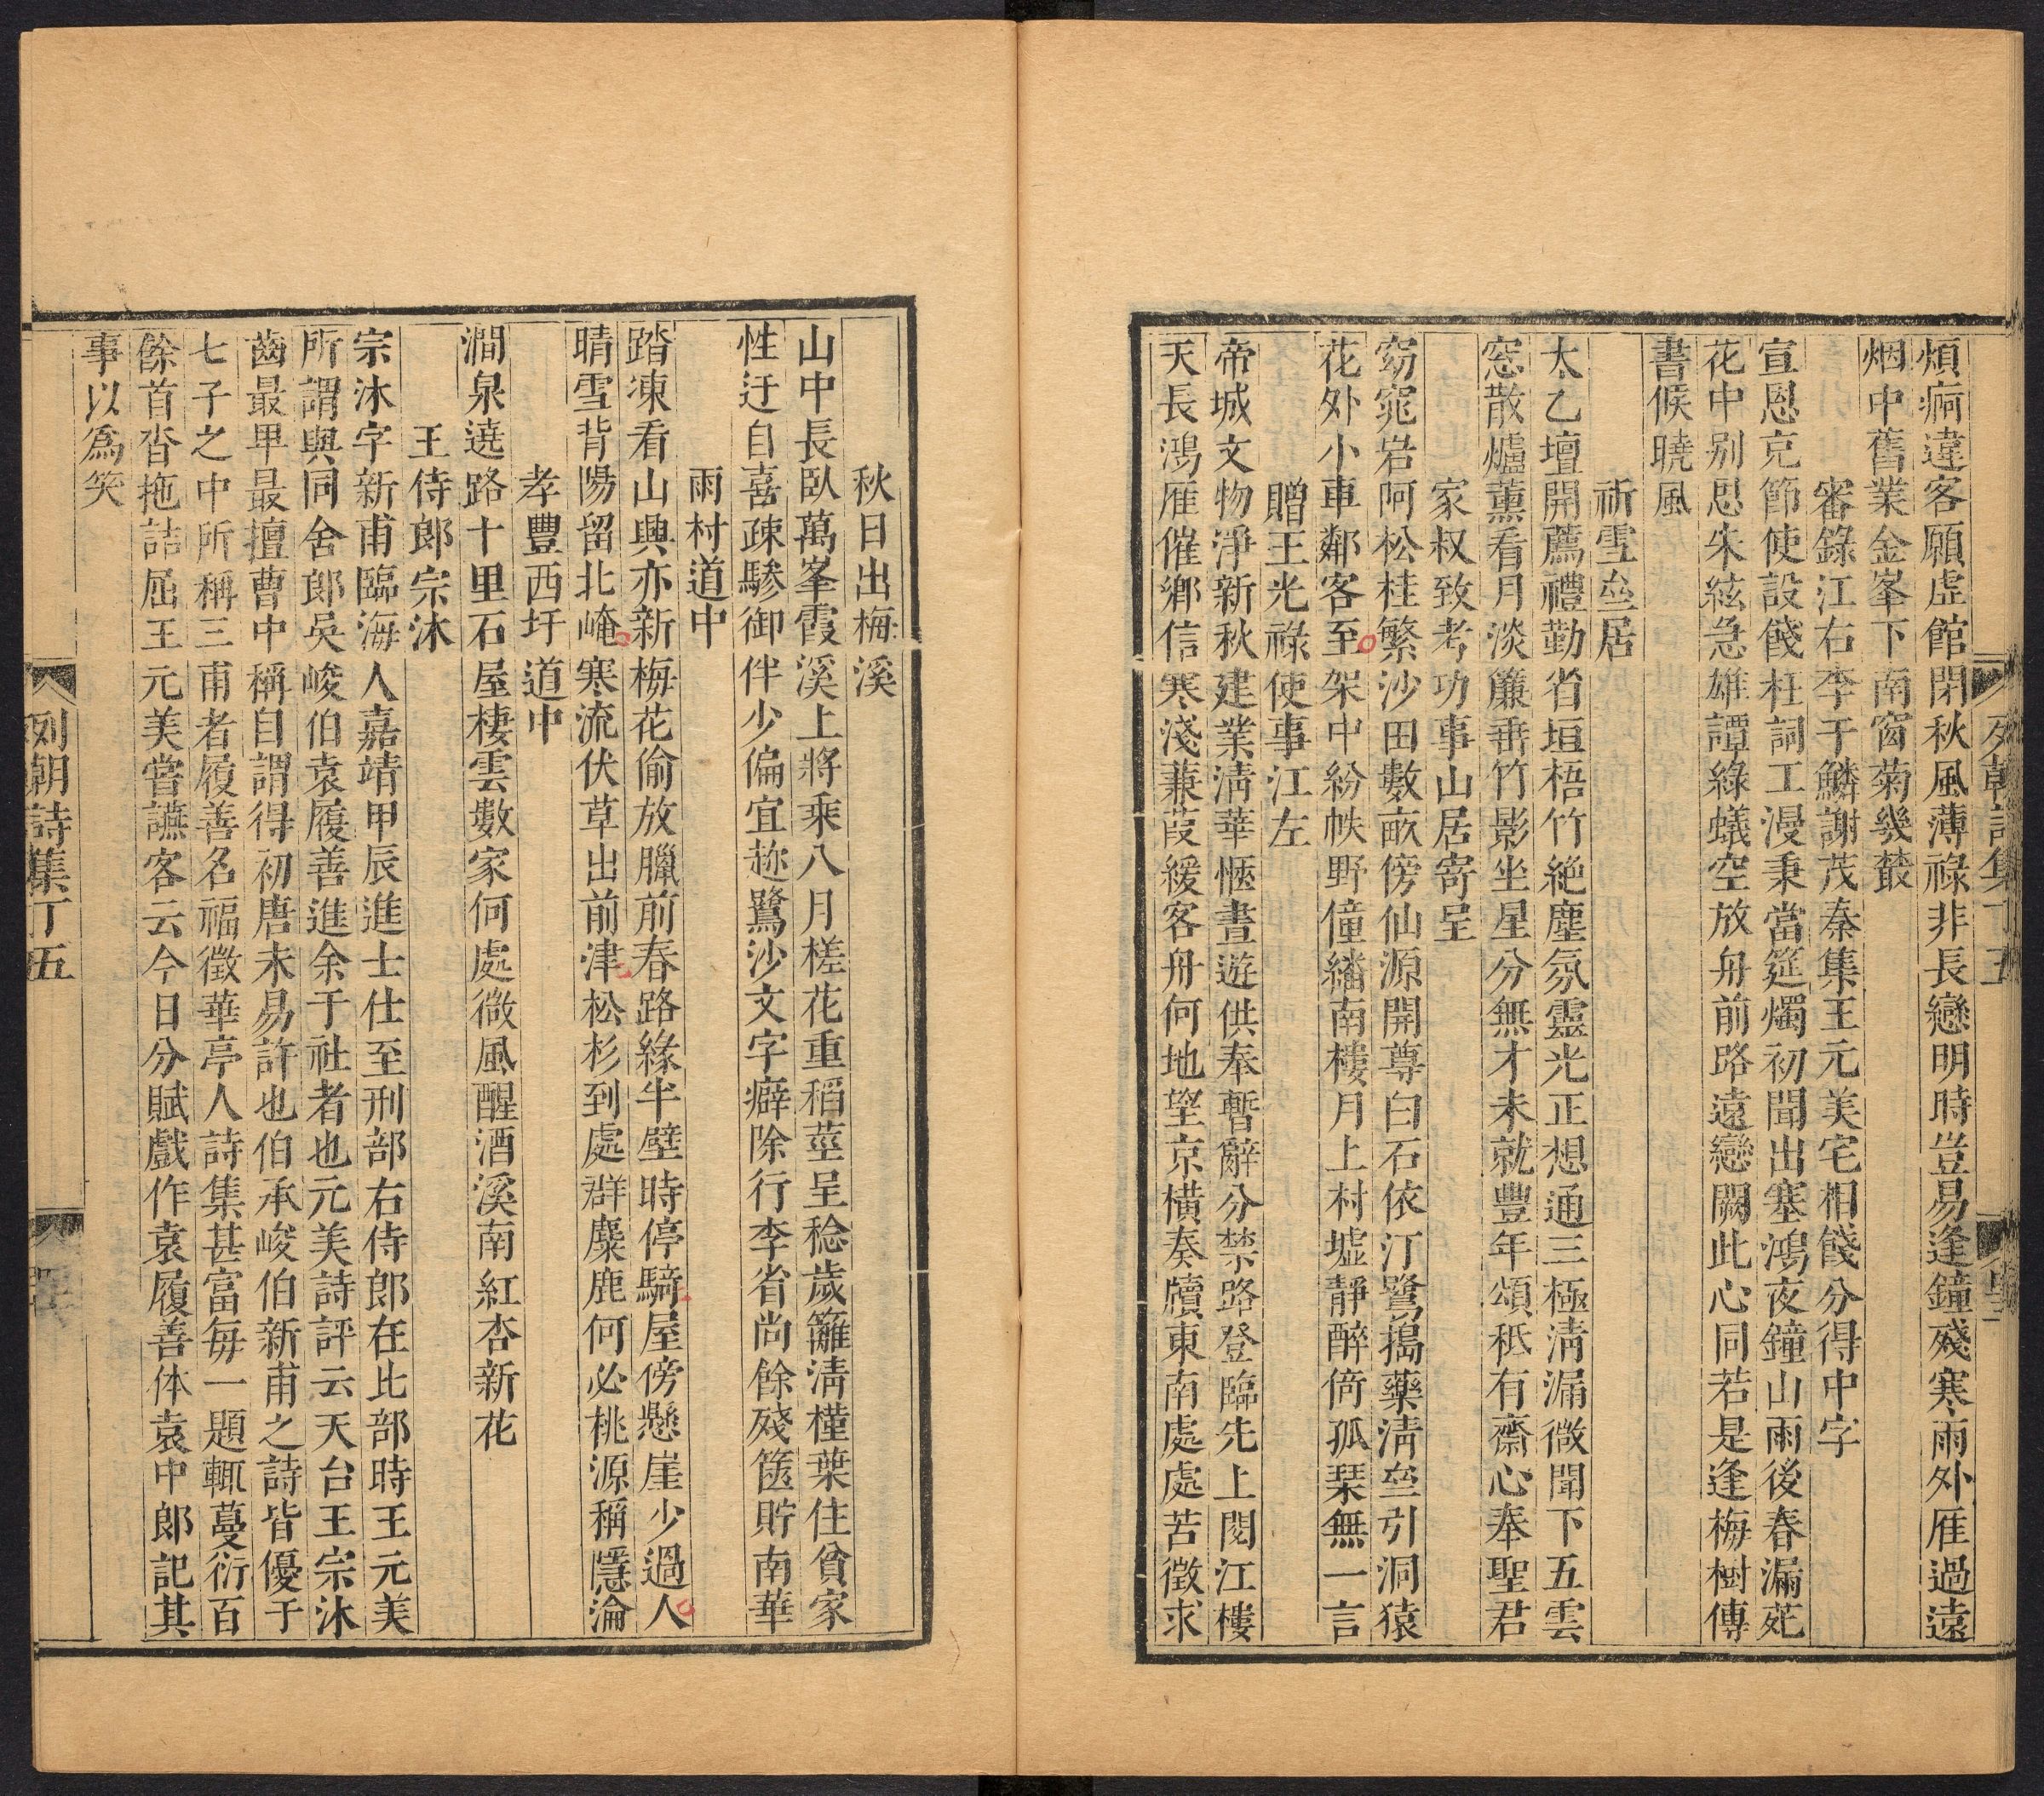 煩痾違客願虛館閉秋風薄祿非長戀明時豈易逢鐘殘寒雨外雁過遠
烟中舊業金峯下南窗菊幾叢
審錄江右李于鱗謝茂秦集王元美宅相餞分得中字
宣恩克節使設餞枉詞工漫秉當筵燭初聞出塞鴻夜鐘山雨後春漏苑
花中别思朱絃急雄譚綠蟻空放舟前路遠戀闕此心同若是逢梅樹傳
書候曉風
祈雪壘居
太乙壇開薦禮勤省垣梧竹絶塵氛靈光正想通三極淸漏微聞下五雲
窓散爐薰看月淡簾垂竹影坐星分無才未就豐年頌秪有齋心奉聖君
家叔致考功事山居寄呈
窈窕岩阿松桂繁沙田數畝傍仙源開尊白石依汀鷺搗藥淸壘引洞猿
花外小車鄰客至架中紛帙野僮繙南樓月上村墟靜醉倚孤琹無一言
贈王光祿使事江左
帝城文物淨新秋建業淸華愜晝遊供奉暫辭分禁路登臨先上閱江樓
天長鴻雁催鄉信寒淺蒹葭緩客舟何地望京橫奏牘東南處處苦徵求
秋日出梅溪
山中長臥萬峯霞溪上將乘八月槎花重稻莖呈稔歲籬淸槿葉住貧家
性迂自喜疎驂御伴少偏宜趂鷺沙文字癖除行李省尚餘殘篋貯南華
雨村道中
踏凍看山興亦新梅花偷放臘前春路緣半壁時停騎屋傍懸崖少過人
晴雪背陽留北崦寒流伏草出前津松杉到處群麋鹿何必桃源稱隱淪
孝豐西圩道中
澗泉遶路十里石屋棲雲數家何處微風醒酒溪南紅杏新花
王侍郎宗沐
宗沐字新甫臨海人嘉靖甲辰進士仕至刑部右侍郎在比部時王元美
所謂與同舍郎吳峻伯袁履善進余于社者也元美詩評云天台王宗沐
齒最甲最擅曹中稱自謂得初唐未易許也伯承峻伯新甫之詩皆優于
七子之中所稱三甫者履善名福徵華亭人詩集甚富每一題輒蔓衍百
餘首沓拖詰屈王元美嘗讌客云今日分賦戲作袁履善体袁中郎記其
事以爲笑
列朝詩集丁五